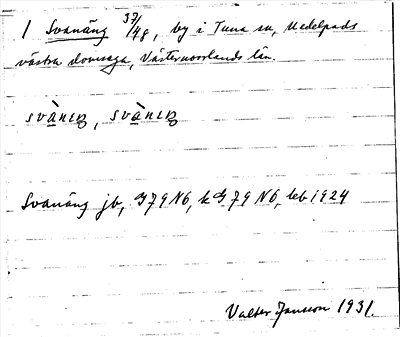 1 Svanäng 37/48, by i Tuna sn, Medelpads
västra domsaga, Västernorrlands län.
svànıŋ, svànıŋ
Svanäng jb, G79 N6, k G79 N6, leb 1924
Valter Jansson 1931.